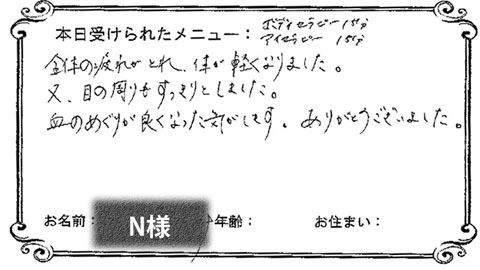 本日受けられたメニュー： ボディセラピー 15分
アイセラピー 15分
全体の疲れがとれ、体が軽くなりました。
又、目の周りもすっきりとしました。
血のめぐりが良くなった気がします。ありがとうございました。
お名前： N様 年齢： お住まい：